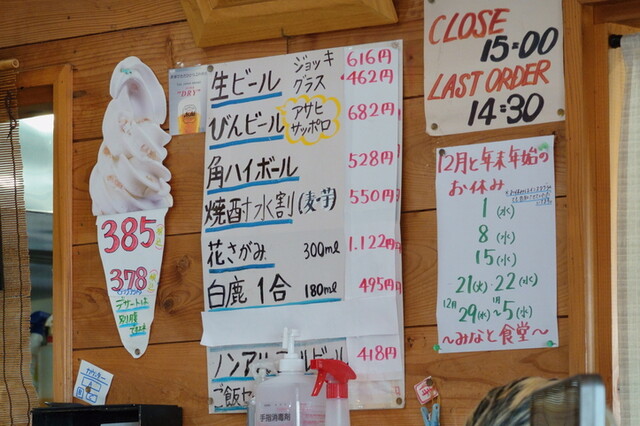 CLOSE
15:00
LAST ORDER
14:30
"DRY"
生ビール ジョッキ 616円
グラス 462円
びんビール アサヒ サッポロ 682円
角ハイボール 528円
焼酎水割(麦・芋) 550円
花さがみ 300ml 1.122円
白鹿 1合 180ml 495円
ノンアル ビール 418円
ご飯セ
385
378
デザートは
別腹
12月と年末年始の
お休み
1(水)
8(水)
15(水)
21(火)・22(水)
12月29(水)~1月5(水)
~みなと食堂~
カウンター
手指消毒剤